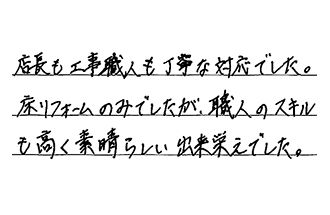 店長も工事職人も丁寧な対応でした。
床リフォームのみでしたが、職人のスキル
も高く素晴らしい出来栄えでした。